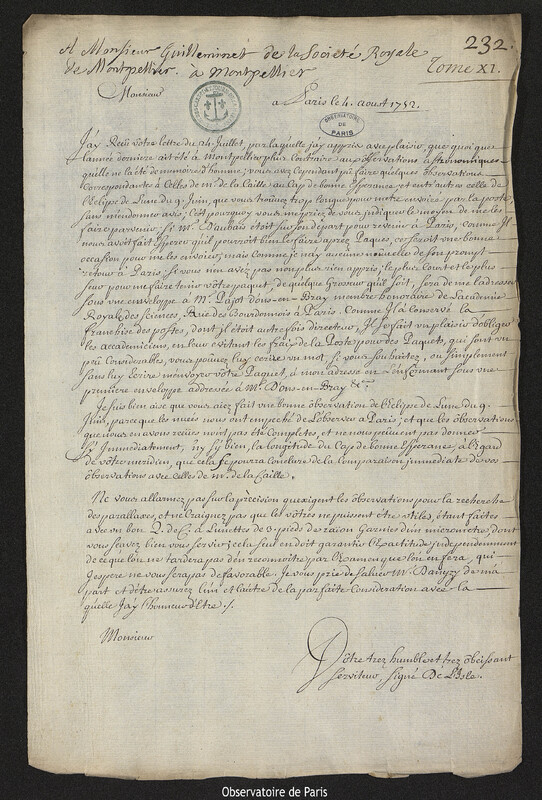 A Monsieur Guilleminet de la Société Royale 232.
de Montpellier. à Montpellier Tome XI.
Monsieur
a Paris le 4. aoust 1752.
OBSERVATOIRE DE PARIS
J'ay Reçû vôtre lettre du 24. Juillet, par laquelle j'ay appris avec plaisir, que quoi que
l'année derniere ait été à Montpellier plus contraire aux observations astronomiques
qu'elle ne l'a été de memoire d'homme; vous avez cependant pû faire quelques observations
Correspondantes à Celles de m. de la Caille au Cap de bonne Esperance et entr'autres celle de
l'Eclipse de Lune du 9. Juin, que vous trouvez trop longue pour m'etre envoiée par la poste,
sans m'en donner avis; C'est pourquoy vous me priez de vous indiquer le moyen de me les
faire parvenir. Si Mr. Danbais étoit sur son départ pour revenir à Paris, comme Il
nous avoit fait Esperer qu'il pourroit bien le faire après Paques, ce seroit une bonne
occasion pour me les envoier, mais comme je n'ay aucune nouvelle de son prompt
retour à Paris. Si vous n'en avez pas non plus rien appris, le plus court et le plus
seur pour me faire tenir vôtre paquet, de quelque Grosseur qu'il soit, sera de me l'adresser
sous une enveloppe à Mr. Pajot d'ons-en-Bray membre honoraire de l'academie
Royale des sciences, Rüe des Bourdonnois à Paris. Comme Il a conservé la
franchise des postes, dont il étoit autrefois directeur, Il se fait un plaisir d'obliger
les academiciens, en leur evitant les frais de la Poste pour des Paquets, qui sont un
peu Considerables, vous pouvez luy ecrire un mot, si vous souhaitez, ou simplement
sans luy Ecrire m'envoyer vôtre Paquet, à mon adresse en l'enfermant sous une
premiere enveloppe addressée à Mr. d'Ons-en-Bray &c.
Je suis bien aise que vous aiez fait une bonne observation de l'Eclipse de Lune du 9.
Juin, parce que les nuées nous ont empeché de l'observer à Paris; et que les observations
que nous en avons reçües n'ont pas été Completes, et ne nous peuvent pas donner
si Immediatement, ny si bien, la longitude du Cap de bonne Esperance à l'égard
de vôtre meridien, que cela se pourra conclure de la Comparaison immediate de vos
observations avec celles de m. de la Caille.
Ne vous allarmez pas sur la précision qu'exigent les observations pour la recherche
des parallaxes, et ne Craignez pas que les vôtres ne puissent être utiles, étant faites
avec un bon Q. de C. à Lunettes de 3. pieds de raïon Garnies d'un micrometre, dont
vous savez bien vous servir; cela seul en doit garantir l'Exactitude, independemment
de ce que l'on ne tardera pas d'en reconnoitre par l'Examen que l'on en fera, qui
j'espere ne vous sera pas defavorable. Je vous prie de saluer M. Danyzy de ma
part et d'être assurez l'un et l'autre de la parfaite Consideration avec la
quelle J'ay l'honneur d'Etre ./.
Monsieur
Vôtre trez humble et trez obeissant
serviteur, signé De L'Isle.
Observatoire de Paris